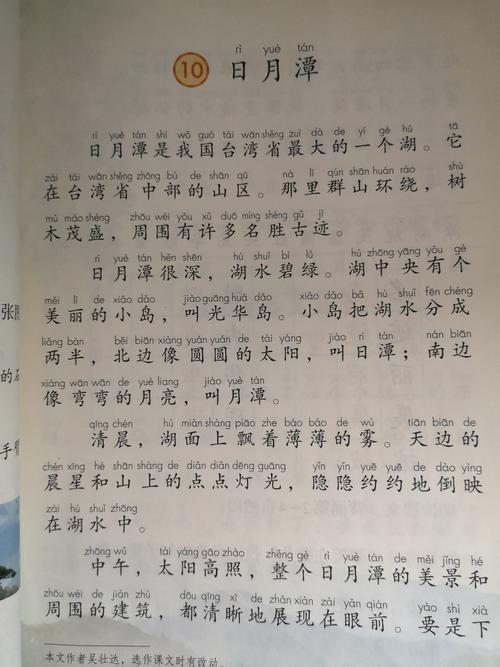 rì yuè tán
10 日月潭
rì yuè tán shì wǒ guó tái wān shěng zuì dà de yí gè hú tā
日月潭是我国台湾省最大的一个湖。它
zài tái wān shěng zhōng bù de shān qū nà lǐ qún shān huán rào shù
在台湾省中部的山区。那里群山环绕，树
mù mào shèng zhōu wéi yǒu xǔ duō míng shèng gǔ jì
木茂盛，周围有许多名胜古迹。
rì yuè tán hěn shēn hú shuǐ bì lǜ hú zhōng yāng yǒu gè
日月潭很深，湖水碧绿。湖中央有个
měi lì de xiǎo dǎo jiào guāng huá dǎo xiǎo dǎo bǎ hú shuǐ fēn chéng
美丽的小岛，叫光华岛。小岛把湖水分成
liǎng bàn běi biān xiàng yuán yuán de tài yáng jiào rì tán nán biān
两半，北边像圆圆的太阳，叫日潭；南边
xiàng wān wān de yuè liang jiào yuè tán
像弯弯的月亮，叫月潭。
qīng chén hú miàn shàng piāo zhe báo báo de wù tiān biān de
清晨，湖面上飘着薄薄的雾。天边的
chén xīng hé shān shàng de diǎn diǎn dēng guāng yǐn yǐn yuē yuē de dào yìng
晨星和山上的点点灯光，隐隐约约地倒映
zài hú shuǐ zhōng
在湖水中。
zhōng wǔ tài yáng gāo zhào zhěng gè rì yuè tán de měi jǐng hé
中午，太阳高照，整个日月潭的美景和
zhōu wéi de jiàn zhù dōu qīng xī de zhǎn xiàn zài yǎn qián yào shi xià
周围的建筑，都清晰地展现在眼前。要是下
本文作者吴壮达，选作课文时有改动。
张图
的石
手臂